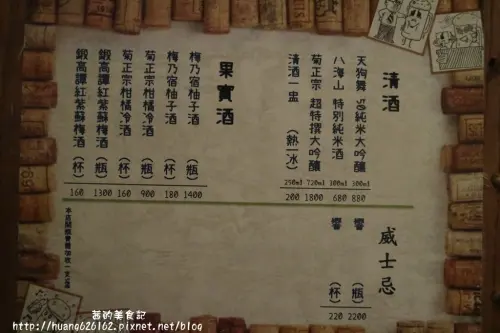 清酒
天狗舞 50純米大吟釀 300ml 880
八海山 特別純米酒 300ml 680
菊正宗 超特撰大吟釀 720ml 1800
清酒一盅 (熱-冰) 250ml 200
果實酒
梅乃宿柚子酒 (瓶) 1400
梅乃宿柚子酒 (杯) 180
菊正宗柑橘冷酒 (瓶) 900
菊正宗柑橘冷酒 (杯) 160
鍛高譚紅紫蘇梅酒 (瓶) 1300
鍛高譚紅紫蘇梅酒 (杯) 160
威士忌
響 (瓶) 2200
響 (杯) 220
茜的美食記
http://huang626162.pixnet.net/blog